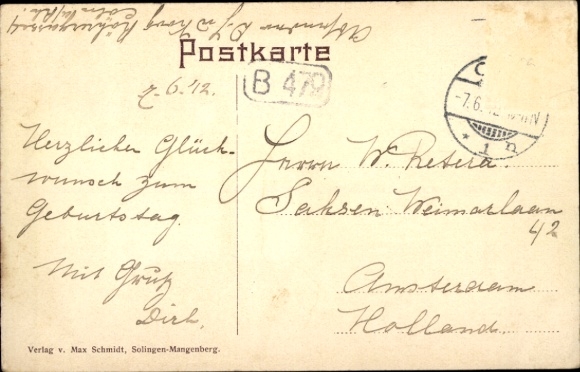 Absender D. J. v. Hoof
Köln a/Rh.
Postkarte
7.6.42.
B 479
-7.6.
* 1 n
Herzlichen Glück-
wunsch zum
Geburtstag.
Mit Gruß
Dirk.
Herrn W. Retera.
Saksen Weimarlaan
42
Amsterdam
Holland.
Verlag v. Max Schmidt, Solingen-Mangenberg.